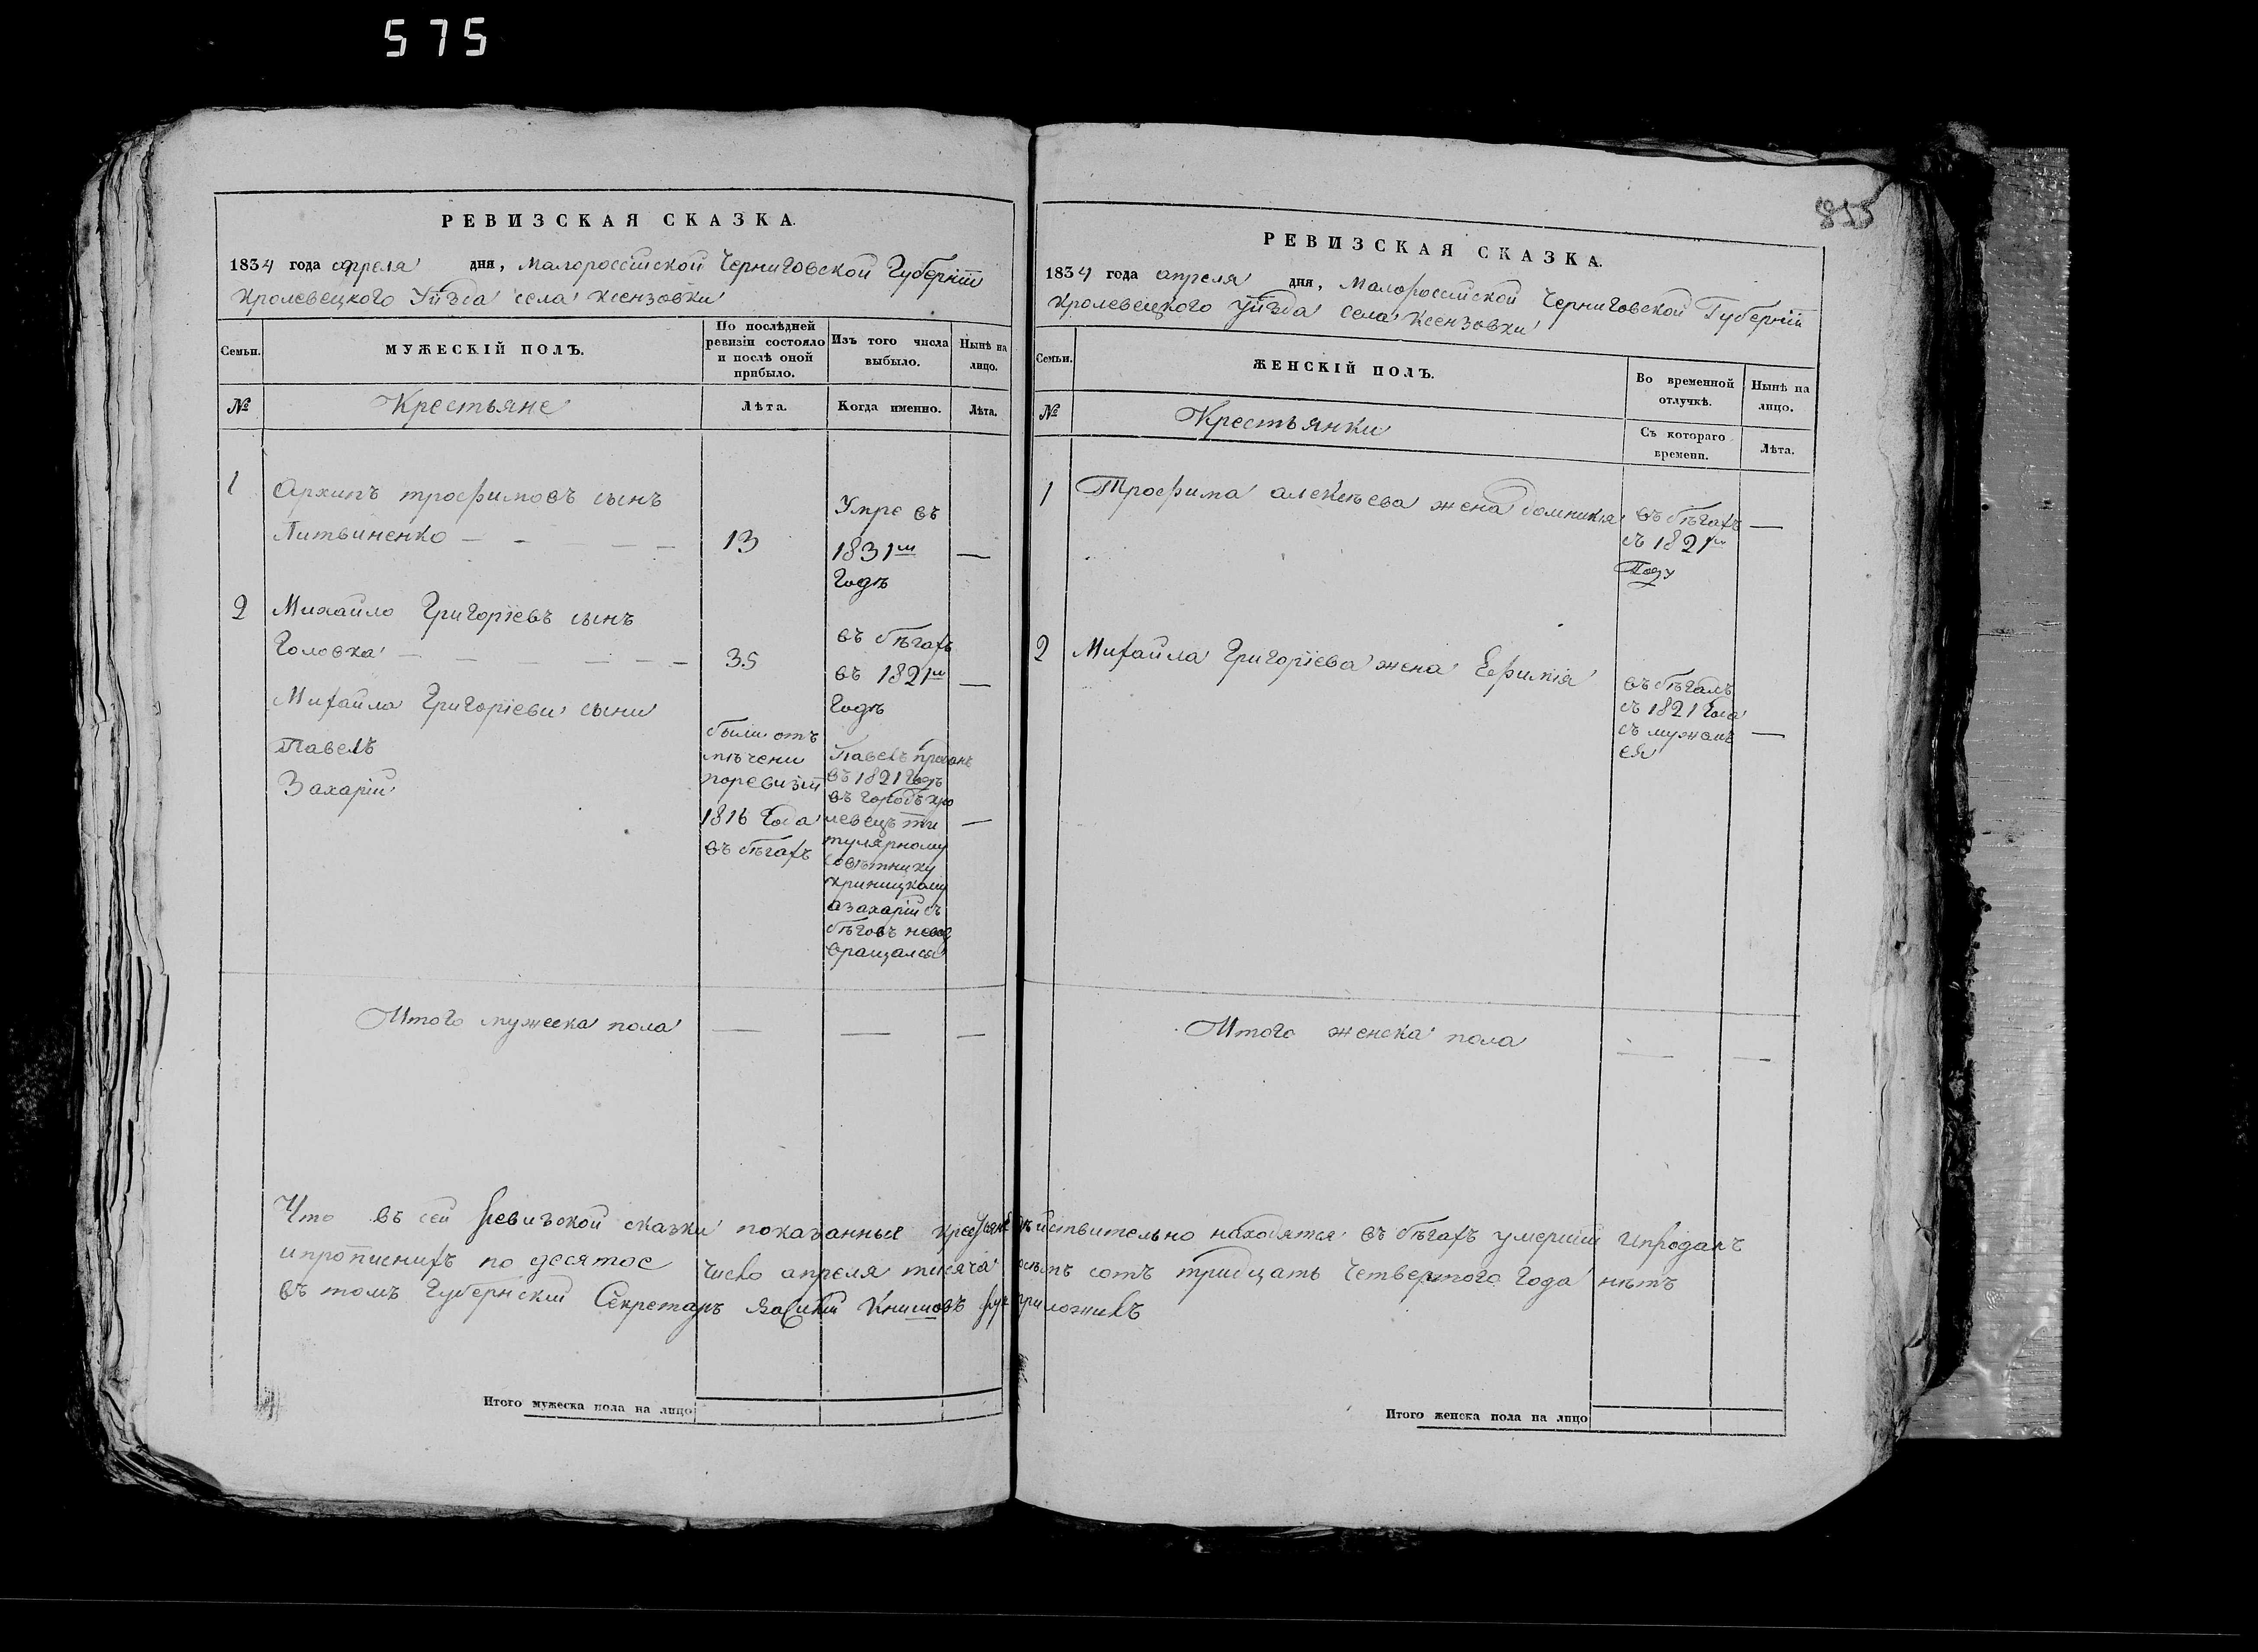 575
РЕВИЗСКАЯ СКАЗКА.
1834 года апреля дня, Малоросеійской Черниговской Губерніи
Кролевецкого Уѣзда села Ксензовки
Семьи.
МУЖЕСКІЙ ПОЛЪ.
По послѣдней ревизіи состояло и послѣ оной прибыло.
Изъ того числа выбыло.
Нынѣ на лицо.
№
Крестьяне
Лѣта.
Когда именно.
Лѣта.
1 Архипъ трофимовъ сынъ
Литвиненко — 13
Умре въ
1831м —
Годѣ
2 Михайло Григоріевъ сынъ
Головка — 35
въ бѣгахъ
въ 1821м —
Годѣ
Михайла Григоріеви сыни
Павелъ
Захарій
были отъ
мѣчени
поревизіи
1816 Года
въ бѣгахъ
Павелъ проданъ
въ 1821 Годѣ
въ городѣ кро
левецъ ти
тулярному
совѣтнику
криницкому
азахарій съ
бѣговъ невоз
вращался
—
Итого мужеска пола — — —
Итого мужеска пола на лицо
855
РЕВИЗСКАЯ СКАЗКА.
1834 года апреля дня, Малоросеійской Черниговской Губерніи
Кролевецкого Уѣзда села Ксензовки
Семьи.
ЖЕНСКІЙ ПОЛЪ.
Во временной отлучкѣ.
Нынѣ на лицо.
№
Крестьянки
Съ котораго времени.
Лѣта.
1 Трофима алексѣева жена домникія
въ бѣгахъ —
съ 1821м
Году
2 Михайла Григоріева жена Ефимія
въ бѣгахъ
съ 1821 Года
съ мужемъ —
ея
Итого женска пола — —
Что въ сей ревизской сказки показанные крестьяне дѣйствительно находятся въ бѣгахъ умерший ипроданъ
ипрописнихъ по десятое число апреля тисяча осѣмъ сотъ тридцать четвертого Года нѣтъ
въ томъ Губернский Секретаръ Книшовъ приложилъ
Итого женска пола на лицо